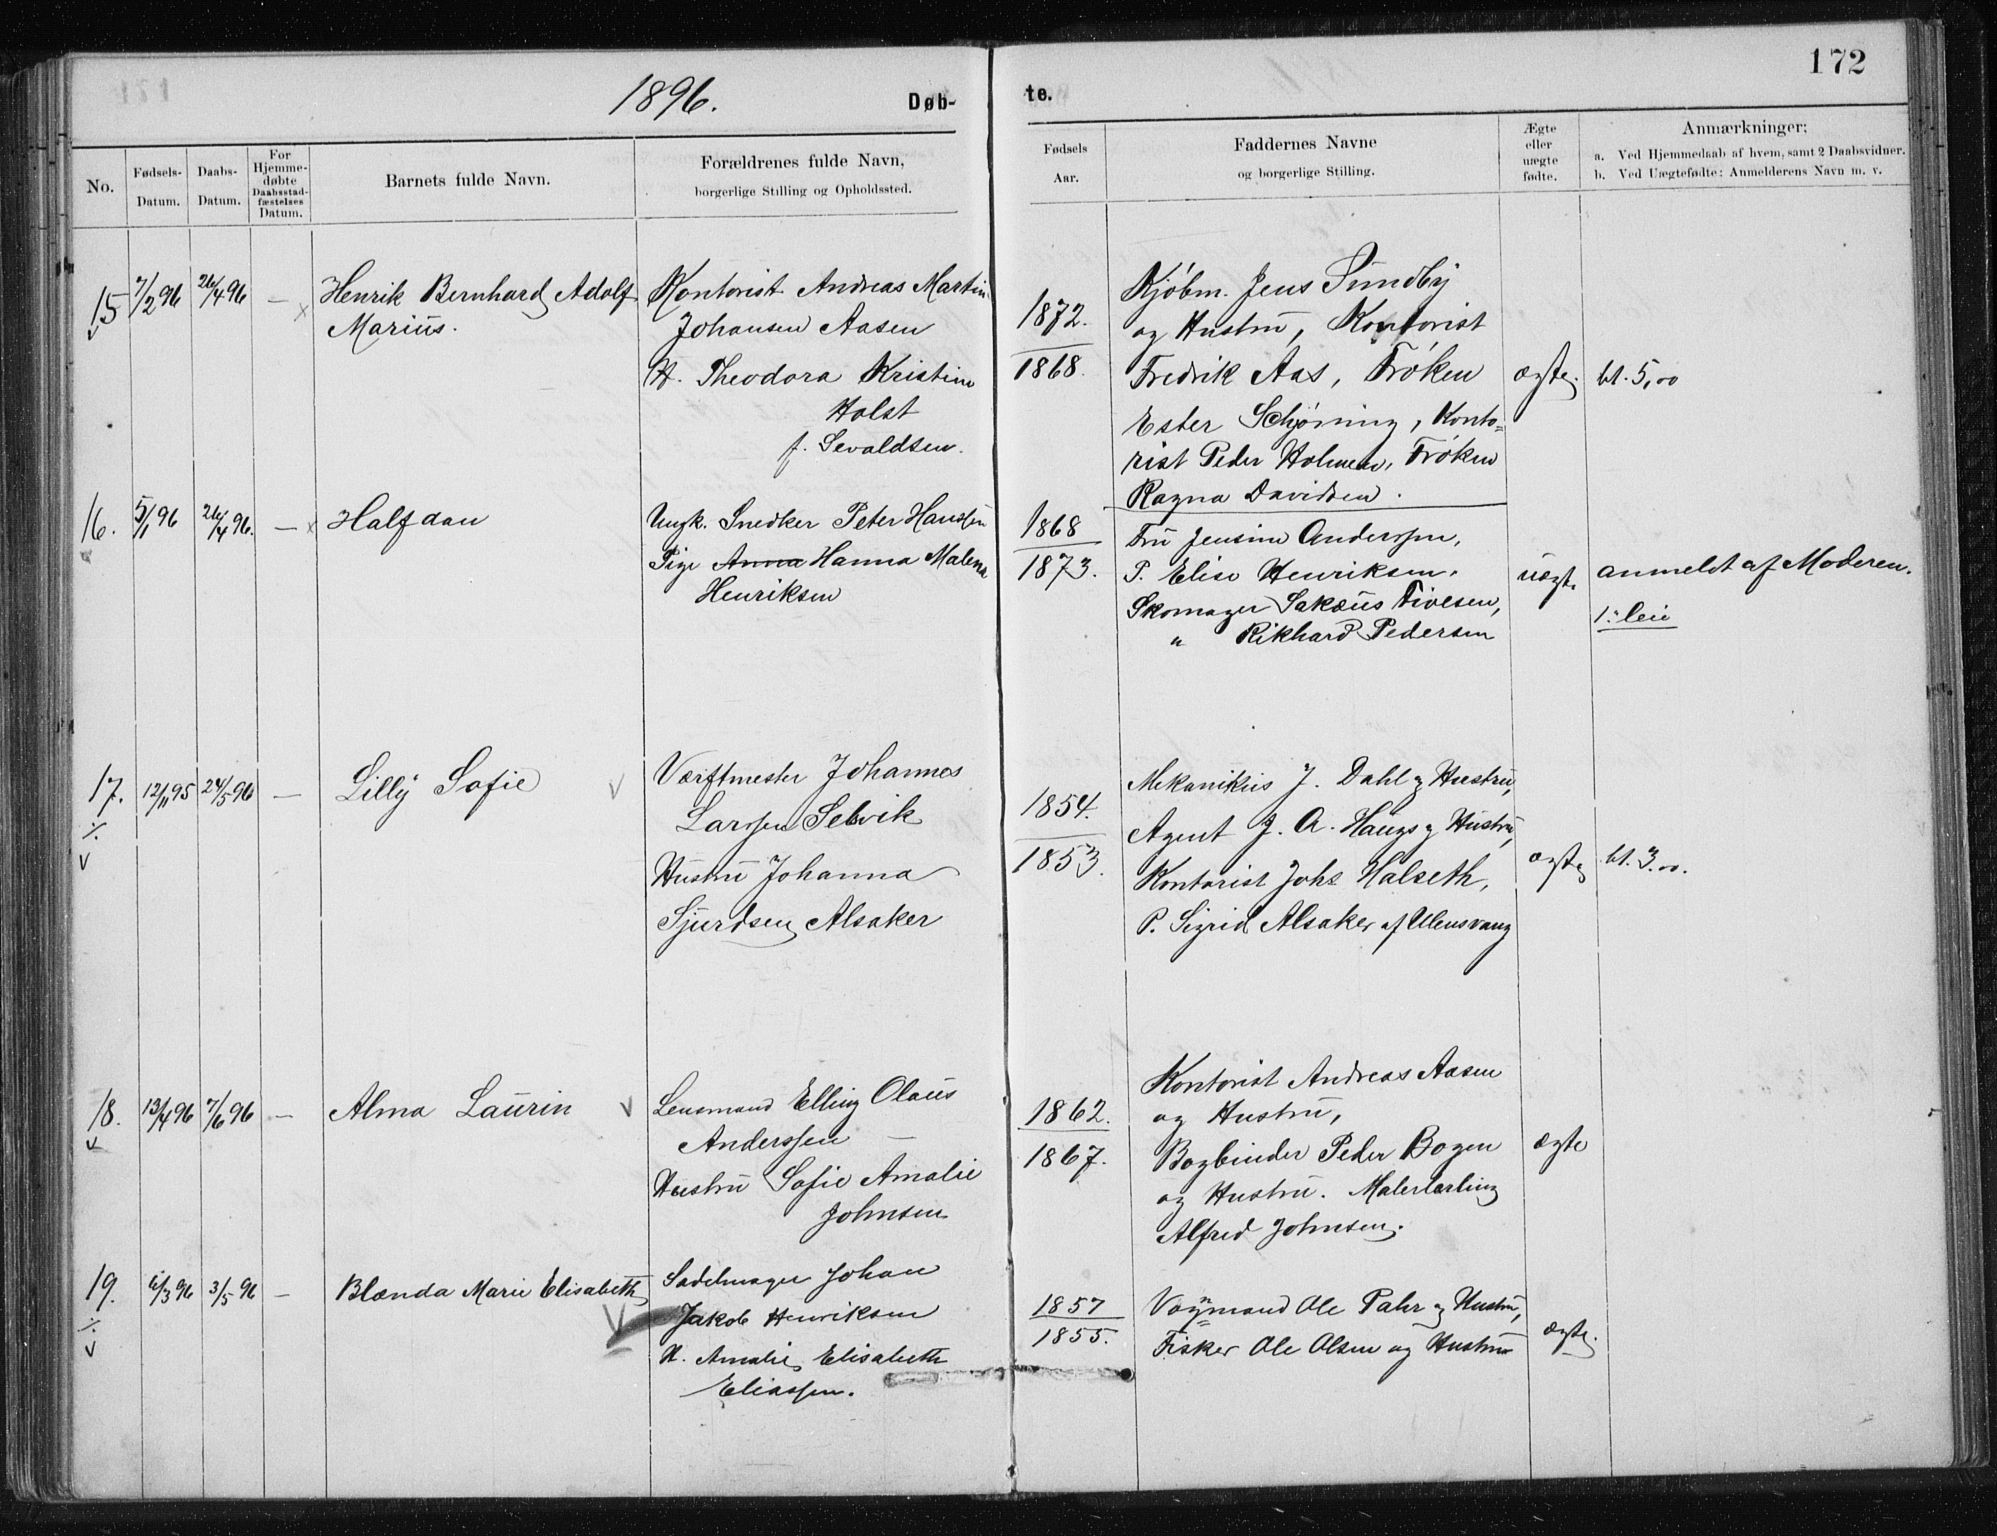 172
1896.
Døb-
te.
No.
Fødsels-
Datum.
Daabs-
Datum.
For
Hjemme-
døbte
Daabsstad-
fæstelses
Datum.
Barnets fulde Navn.
Forældrenes fulde Navn,
borgerlige Stilling og Opholdssted.
Fødsels
Aar.
Faddernes Navne
og borgerlige Stilling.
Ægte
eller
uægte
fødte.
Anmærkninger:
a. Ved Hjemmedaab af hvem, samt 2 Daabsvidner.
b. Ved Uægtefødte: Anmelderens Navn m. v.
15
7/2 96
26/4 96
—
Henrik Bernhard Adolf
Marius.
Kontorist Andreas Martin
Johansen Aasen
H. Theodora Kristine
Holst
f. Sevaldsen.
1872.
1868.
Kjøbm. Jens Sundby
og Hustru, Kontorist
Fredrik Aas, Frøken
Ester Schjøning, Konto=
rist Peder Holmen, Frøken
Ragna Davidsen.
ægte.
bt. 5,00
16.
5/1 96
26/4 96.
—
Halfdan
Ungk. Snedker Peter Hansen
Pige Anna Hanna Malena
Henriksen
1868
1873.
Fru Jensine Anderssen,
P. Elise Henriksen,
Skomager Sakæus Tivesen,
" Rikhard Pedersen
uægte
anmeldt af Moderen.
1ste leie
17.
12/11 95
24/5 96
—
Lilly Sofie
Værftmester Johannes
Larssen Selvik
Hustru Johanna
Sjurdsen Alsaker
1854.
1853.
Mekanikus J. Dahl og Hustru,
Agent J. A. Haugs og Hustru,
Kontorist Johs Halseth,
P. Sigrid Alsaker af Ulensvang
ægte
bt. 3.00.
18.
13/4 96
7/6 96
—
Alma Laurin
Lensmand Elling Olaus
Anderssen —
Hustru Sofie Amalie
Johnsen
1862.
1867.
Kontorist Andreas Aasen
og Hustru,
Bogbinder Peder Bogen
og Hustru. Malerlærling
Alfred Johnsen.
ægte
19.
6/3 96
3/5 96
—
Blænda Marie Elisabeth
Sadelmager Johan
Jakob Henriksen
H. Amalie Elisabeth
Eliassen.
1857
1855.
Vognmand Ole Pahr og Hustru,
Fisker Ole Olsen og Hustru
ægte.